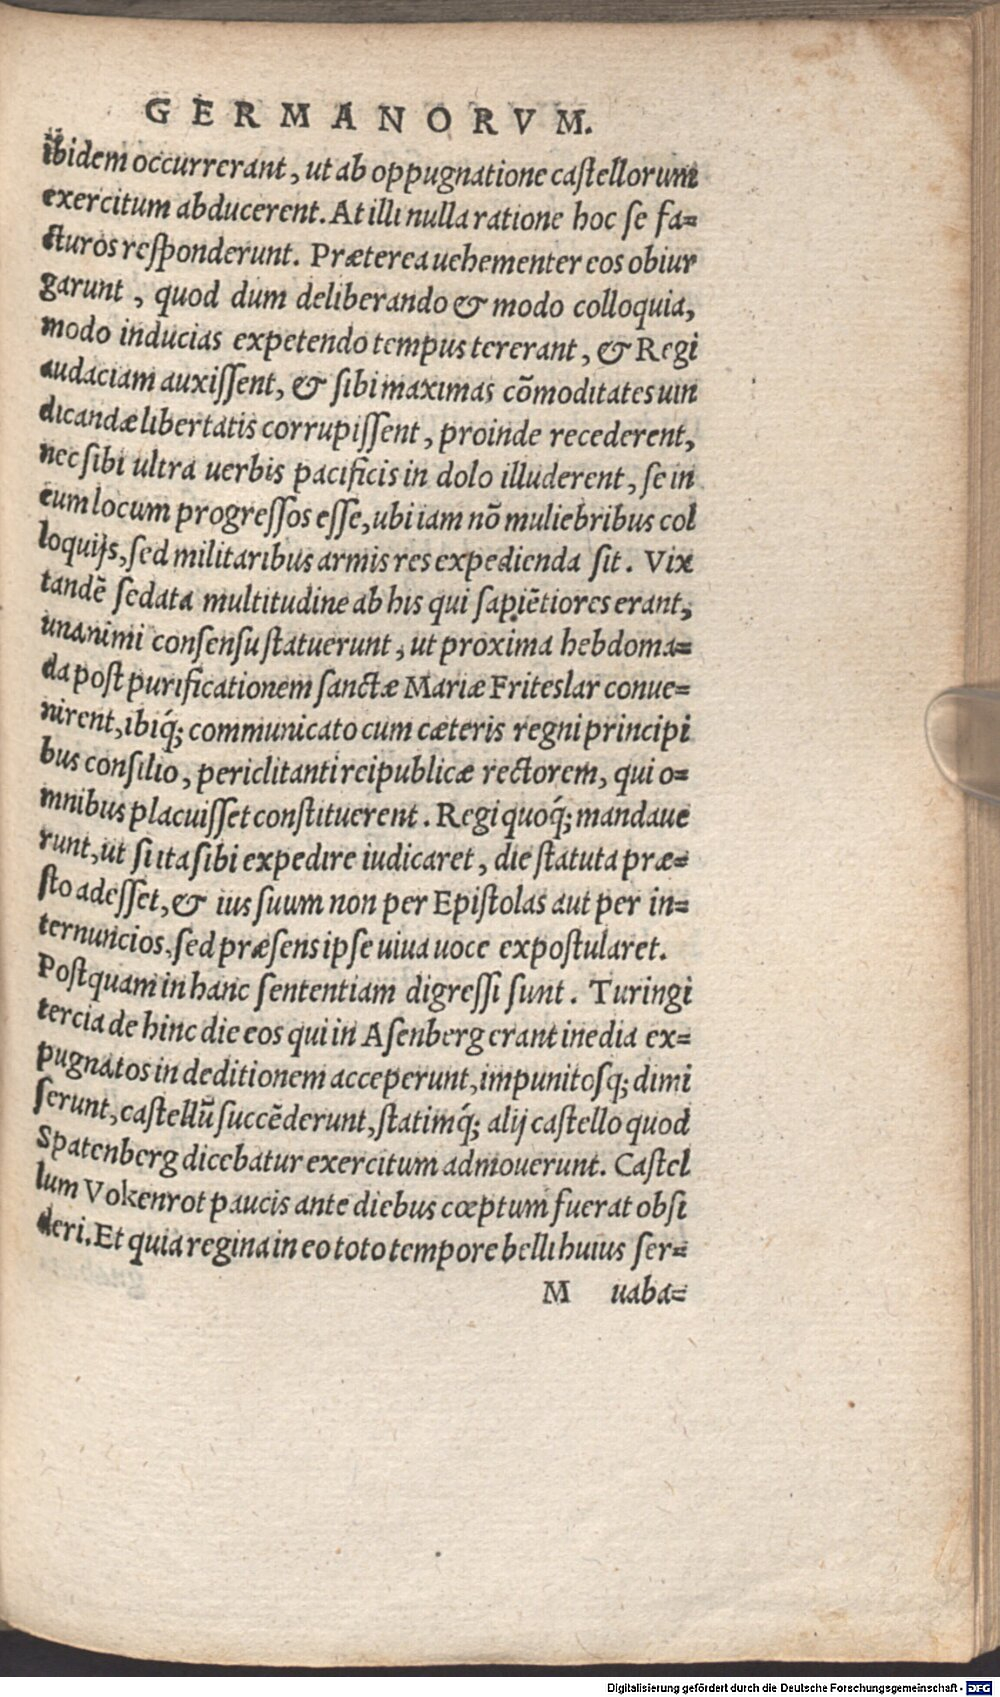 GERMANORVM.
ibidem occurrerant, ut ab oppugnatione castellorum
exercitum abducerent. At illi nulla ratione hoc se fa=
cturos responderunt. Præterea uehementer eos obiur
garunt, quod dum deliberando & modo colloquia,
modo inducias expetendo tempus tererant, & Regi
audaciam auxissent, & sibi maximas cōmoditates uin
dicandæ libertatis corrupissent, proinde recederent,
nec sibi ultra uerbis pacificis in dolo illuderent, se in
eum locum progressos esse, ubi iam nō muliebribus col
loquijs, sed militaribus armis res expedienda sit. Vix
tandē sedata multitudine ab his qui sapiētiores erant,
unanimi consensu statuerunt, ut proxima hebdoma=
da post purificationem sanctæ Mariæ Friteslar conue=
nirent, ibiq́; communicato cum cæteris regni principi
bus consilio, periclitanti reipublicæ rectorem, qui o=
mnibus placuisset constituerent. Regi quoq́; mandaue
runt, ut si ita sibi expedire iudicaret, die statuta præ=
sto adesset, & ius suum non per Epistolas aut per in=
ternuncios, sed præsens ipse uiua uoce expostularet.
Postquam in hanc sententiam digressi sunt. Turingi
tercia de hinc die eos qui in Asenberg erant inedia ex=
pugnatos in deditionem acceperunt, impunitosq; dimi
serunt, castellū succēderunt, statimq́; alij castello quod
Spatenberg dicebatur exercitum admouerunt. Castel
lum Vokenrot paucis ante diebus cœptum fuerat obsi
deri. Et quia regina in eo toto tempore belli huius ser=
M uaba=
Digitalisierung gefördert durch die Deutsche Forschungsgemeinschaft - DFG